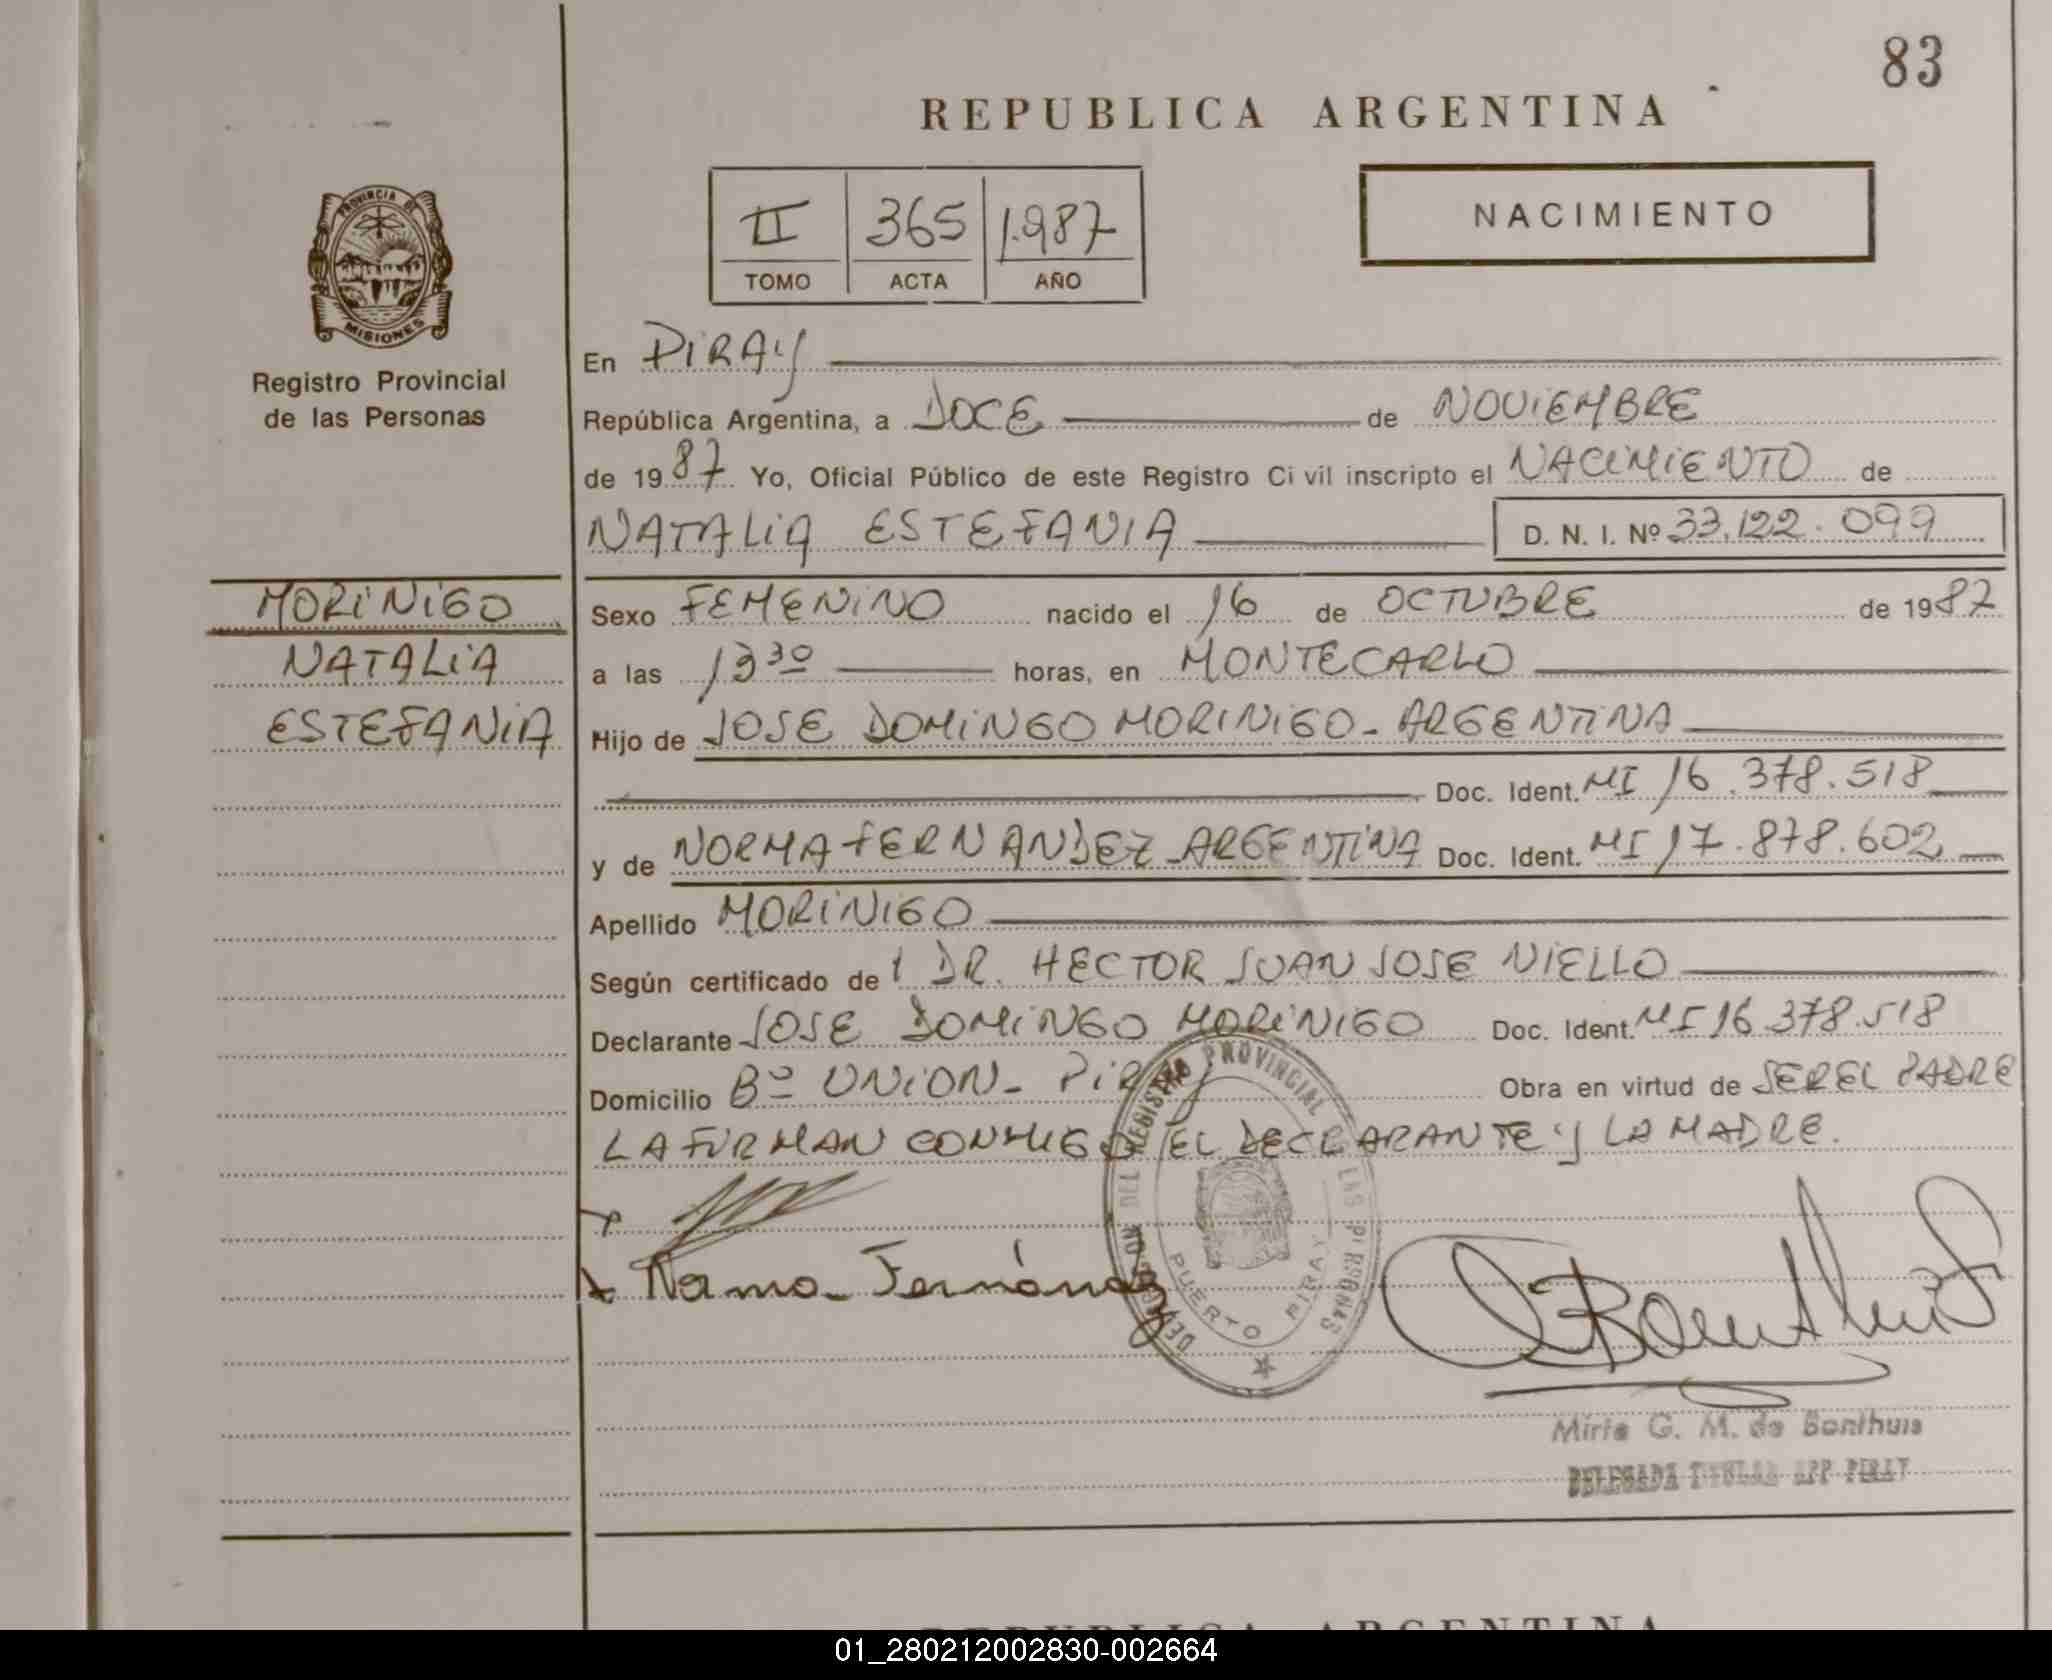 83
REPUBLICA ARGENTINA
NACIMIENTO
II 365 1.987
TOMO ACTA AÑO
PROVINCIA DE
MISIONES
Registro Provincial
de las Personas
En PIRAY
República Argentina, a DOCE de NOVIEMBRE
de 1987 Yo, Oficial Público de este Registro Ci vil inscripto el NACIMIENTO de
NATALIA ESTEFANIA D. N. I. Nº 33.122.099
MORINIGO
NATALIA
ESTEFANIA
Sexo FEMENINO nacido el 16 de OCTUBRE de 1987
a las 13 30 horas, en MONTECARLO
Hijo de JOSE DOMINGO MORINIGO - ARGENTINA
Doc. Ident. MI 16.378.518
y de NORMA FERNANDEZ - ARGENTINA Doc. Ident. MI 17.878.602
Apellido MORINIGO
Según certificado de l DR. HECTOR JUAN JOSE NIELLO
Declarante JOSE DOMINGO MORINIGO Doc. Ident. MI 16.378.518
Domicilio Bº UNION - PIRAY Obra en virtud de SER EL PADRE
LA FIRMAN CONMIGO EL DECLARANTE Y LA MADRE.
Norma Fernández
DEL REGISTRO PROVINCIAL DE LAS PERSONAS
PUERTO PIRAY
Mirta G. M. de Bonthuis
DELEGADA TITULAR RPP PIRAY
REPUBLICA ARGENTINA
01_280212002830-002664